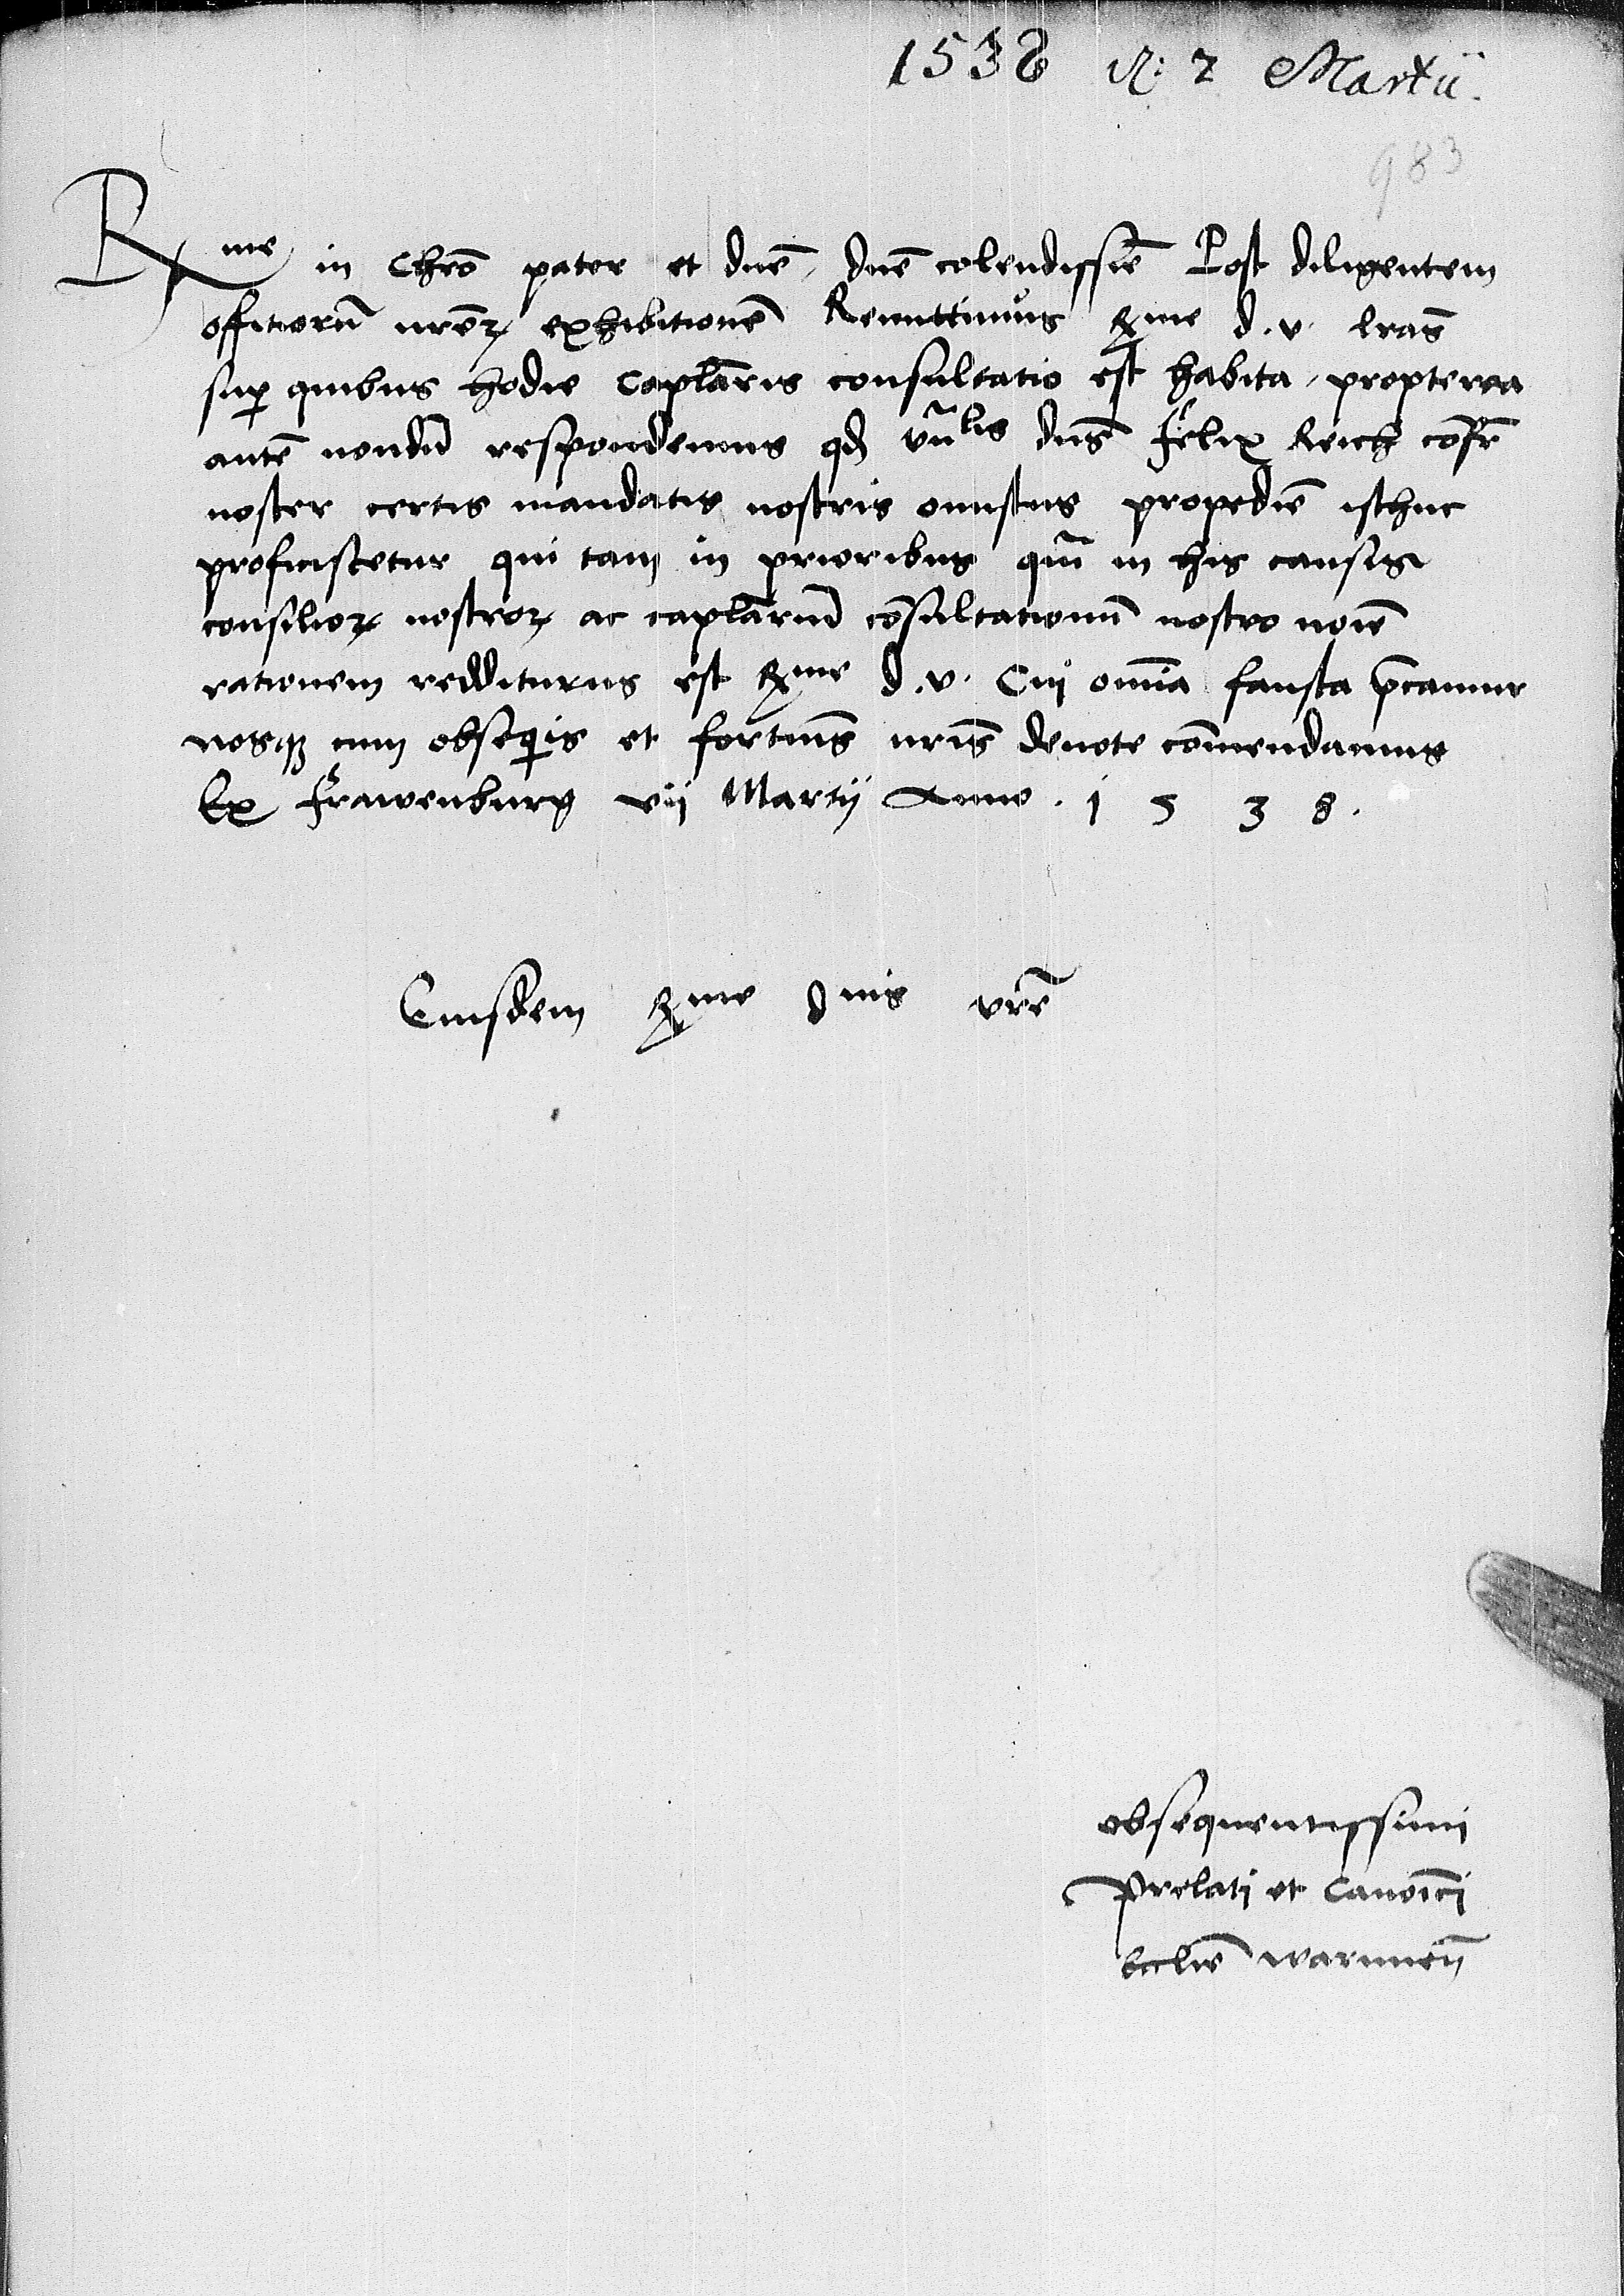 1538 Martii.
983
Rme in Chro pater et dne, dne colendissie Post diligentem
offitioru nrorum exhibitione Remittimus Rme d. v. lras
sup quibus hodie Caplaris consultatio est habita, propterea
aute nondu respondemus qd vnlis dns Felix Reich cofr
noster certis mandatis nostris onustus propedie isthuc
proficiscetur qui tam in prioribus qua in his causis
consiliorum nostrorum ac caplariu cosultationu nostro noie
rationem redditurus est Rme d. v. Cui omnia fausta pcamur
nosque cum obsequijs et fortunis nris deuote comendamus
Ex Frawenburg vij Martij Anno . 1 5 3 8 .
Eiusdem Rme dnis vre
obsequentissimi
Prelati et Canoici
Ecclie warmien